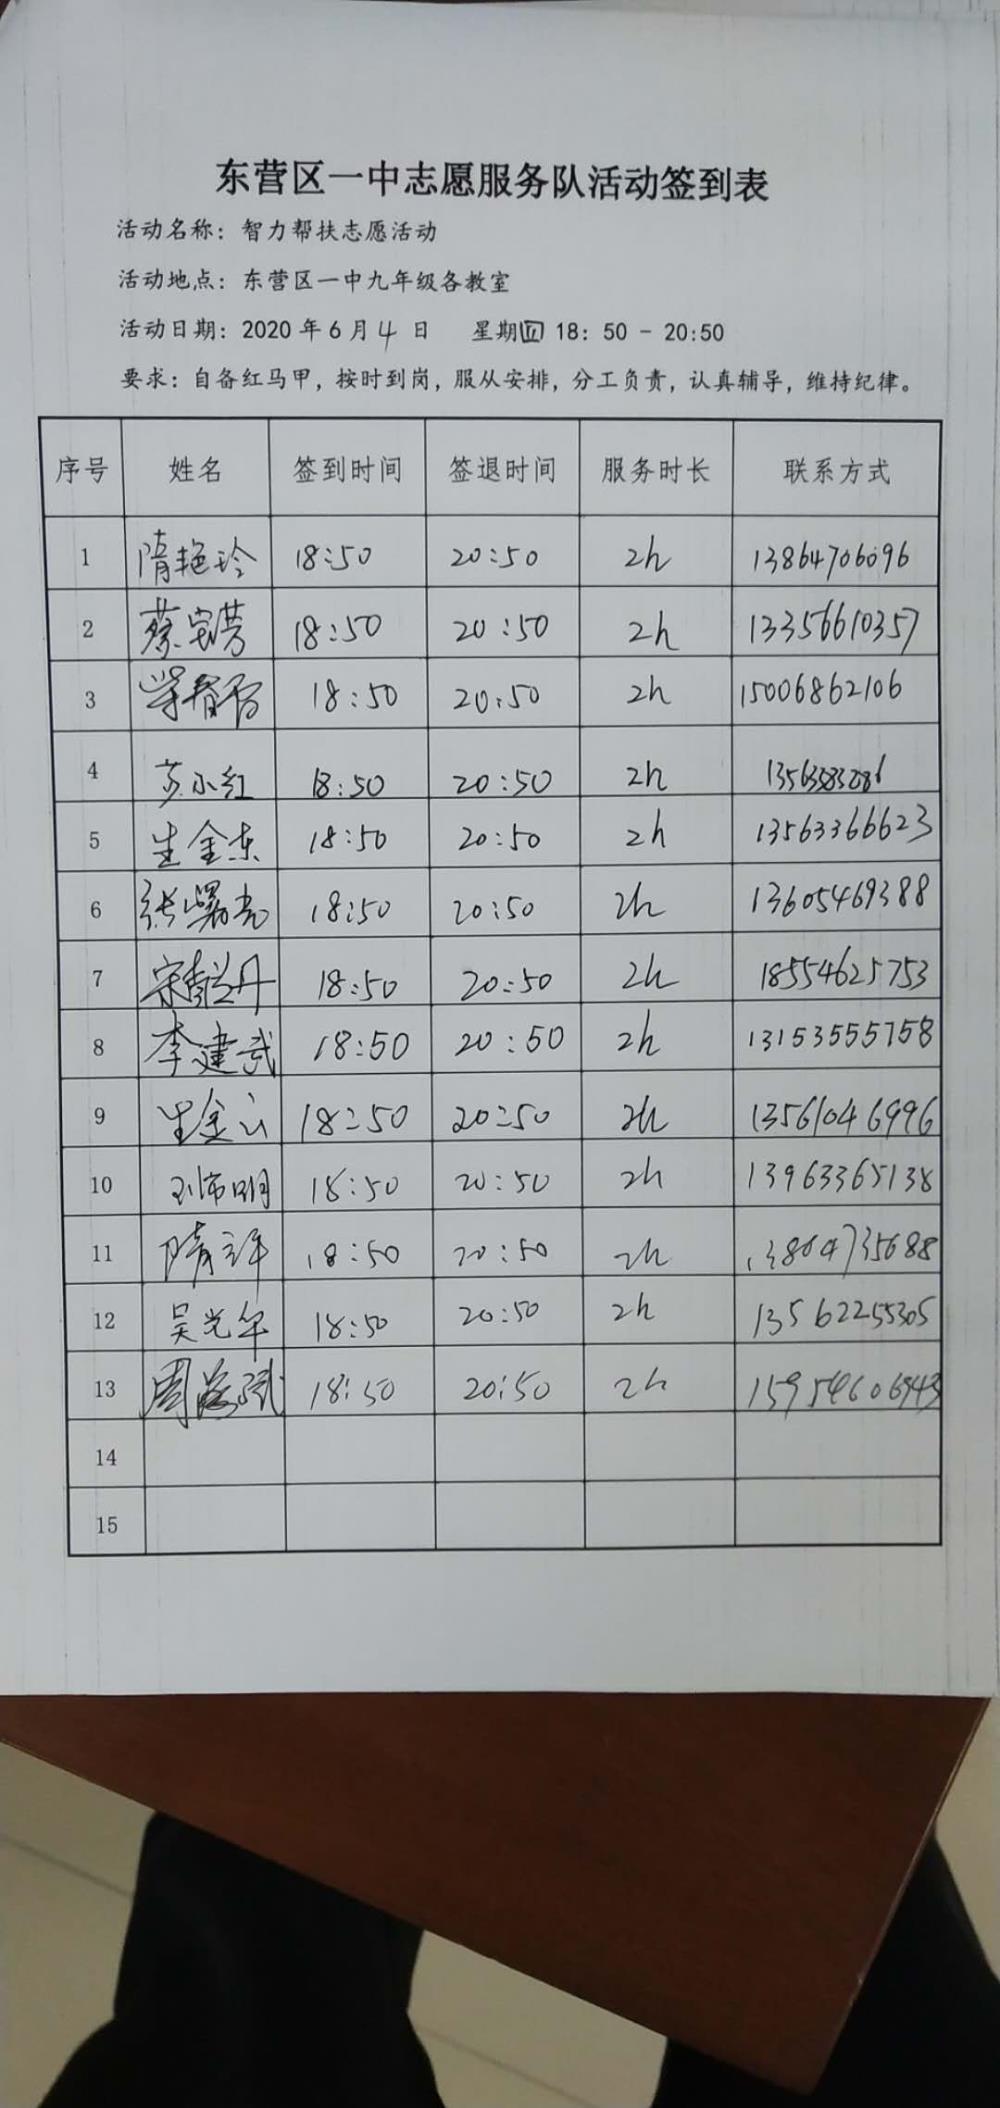 东营区一中志愿服务队活动签到表
活动名称：智力帮扶志愿活动
活动地点：东营区一中九年级各教室
活动日期：2020 年 6 月 4 日 星期四 18：50 - 20:50
要求：自备红马甲，按时到岗，服从安排，分工负责，认真辅导，维持纪律。
序号 姓名 签到时间 签退时间 服务时长 联系方式
1 隋艳玲 18:50 20:50 2h 13864706096
2 18:50 20:50 2h 13356610357
3 18:50 20:50 2h 15006862106
4 苏小红 18:50 20:50 2h
5 生金东 18:50 20:50 2h 13563366623
6 18:50 20:50 2h 13605469388
7 18:50 20:50 2h 18554625753
8 李建武 18:50 20:50 2h 13153555758
9 生金云 18:50 20:50 2h 13561046996
10 18:50 20:50 2h 13963365138
11 18:50 20:50 2h 13864735688
12 吴光华 18:50 20:50 2h 13562255305
13 18:50 20:50 2h 15954606943
14
15